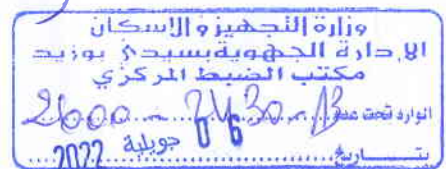 وزارة التجهيز والاسكان
الإدارة الجهوية بسيدي بوزيد
مكتب الضبط المركزي
الوارد تحت عدد
بتــاريخ 06 جويلية 2022